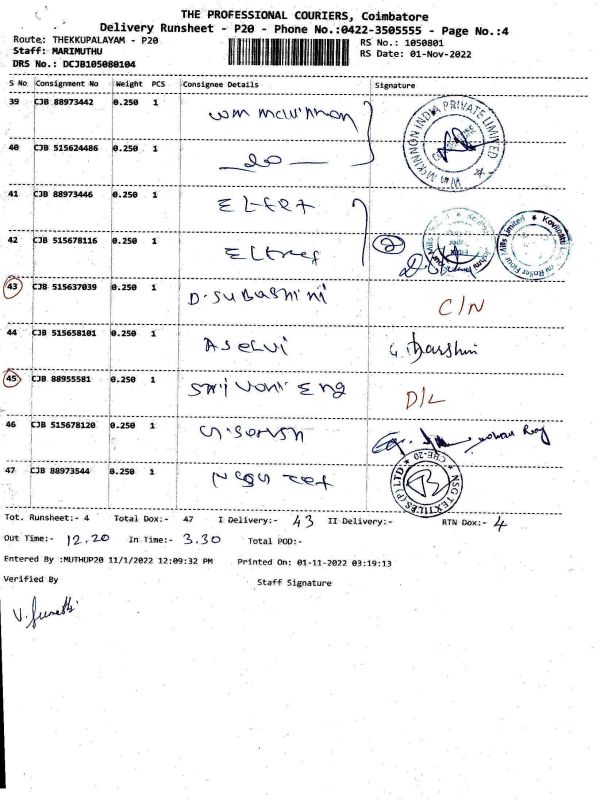 THE PROFESSIONAL COURIERS, Coimbatore
Delivery Runsheet - P20 - Phone No.:0422-3505555 - Page No.:4
Route: THEKKUPALAYAM - P20
RS No.: 1050801
Staff: MARIMUTHU
RS Date: 01-Nov-2022
DRS No.: DCJB105080104
S No Consignment No Weight PCS Consignee Details Signature
39 CJB 88973442 0.250 1 WM MCKINNON
WM MCKINNON INDIA PRIVATE LIMITED
40 CJB 515624486 0.250 1 - do -
41 CJB 88973446 0.250 1
42 CJB 515678116 0.250 1 2
Roller Flour Mills Limited Kovilpatti
43 CJB 515637039 0.250 1 D. SUBASHINI C/N
44 CJB 515658101 0.250 1 A SELVI G. Dharshini
45 CJB 88955581 0.250 1 Eng D/L
46 CJB 515678120 0.250 1
47 CJB 88973544 0.250 1
NSG TEXTILES (P) LTD CBE-20
Tot. Runsheet:- 4 Total Dox:- 47 I Delivery:- 43 II Delivery:- RTN Dox:- 4
Out Time:- 12.20 In Time:- 3.30 Total POD:-
Entered By :MUTHUP20 11/1/2022 12:09:32 PM Printed On: 01-11-2022 03:19:13
Verified By Staff Signature